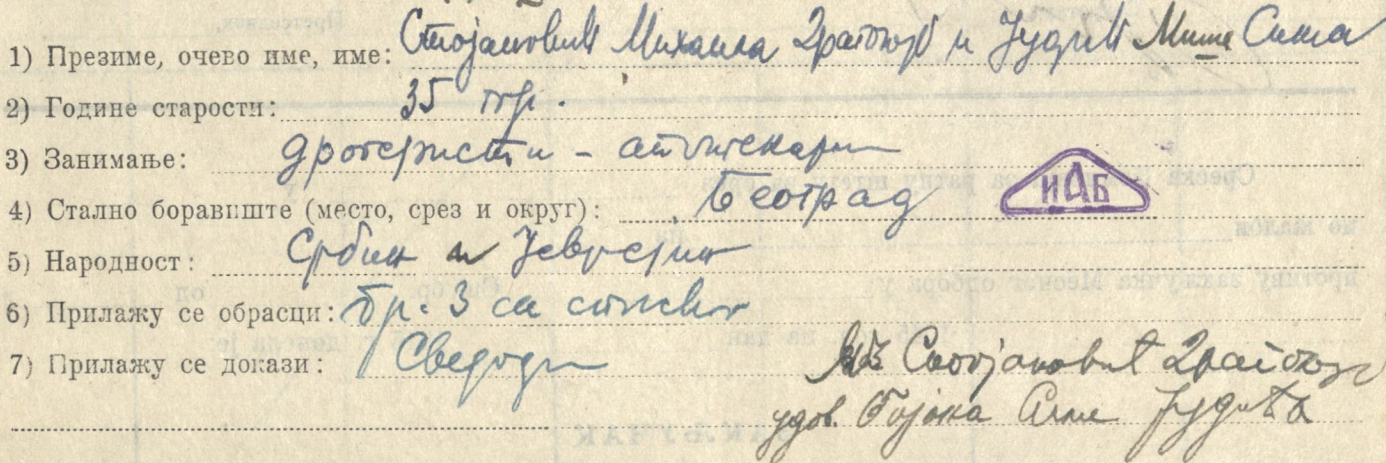 1) Презиме, очево име, име: Стојановић Михаила Драгољуб и Јудић Мише Сима
2) Године старости: 35 год.
3) Занимање: дрогеристи - апотекари
4) Стално боравиште (место, срез и округ): Београд
ИАБ
5) Народност: Србин и Јеврејин
6) Прилажу се обрасци: бр. 3 са
7) Прилажу се докази: Сведоци
Стојановић
удов. Јудића